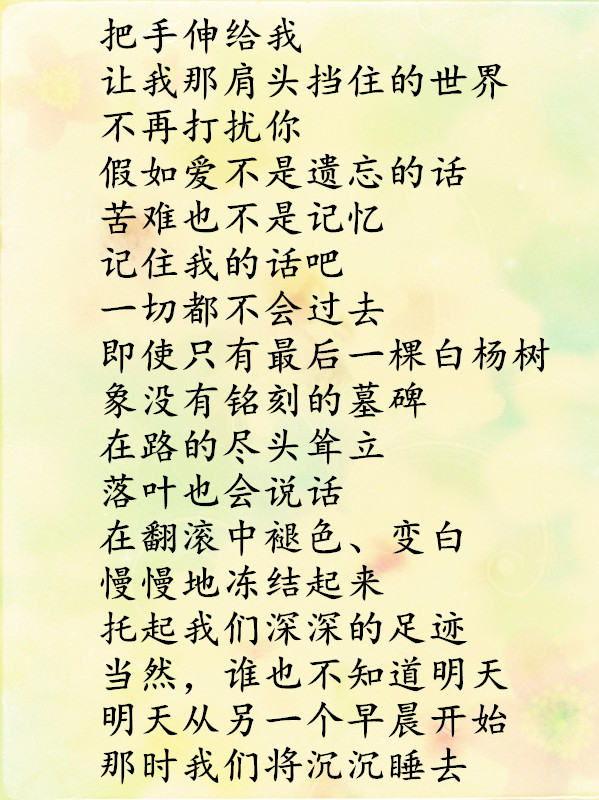 把手伸给我
让我那肩头挡住的世界
不再打扰你
假如爱不是遗忘的话
苦难也不是记忆
记住我的话吧
一切都不会过去
即使只有最后一棵白杨树
象没有铭刻的墓碑
在路的尽头耸立
落叶也会说话
在翻滚中褪色、变白
慢慢地冻结起来
托起我们深深的足迹
当然，谁也不知道明天
明天从另一个早晨开始
那时我们将沉沉睡去